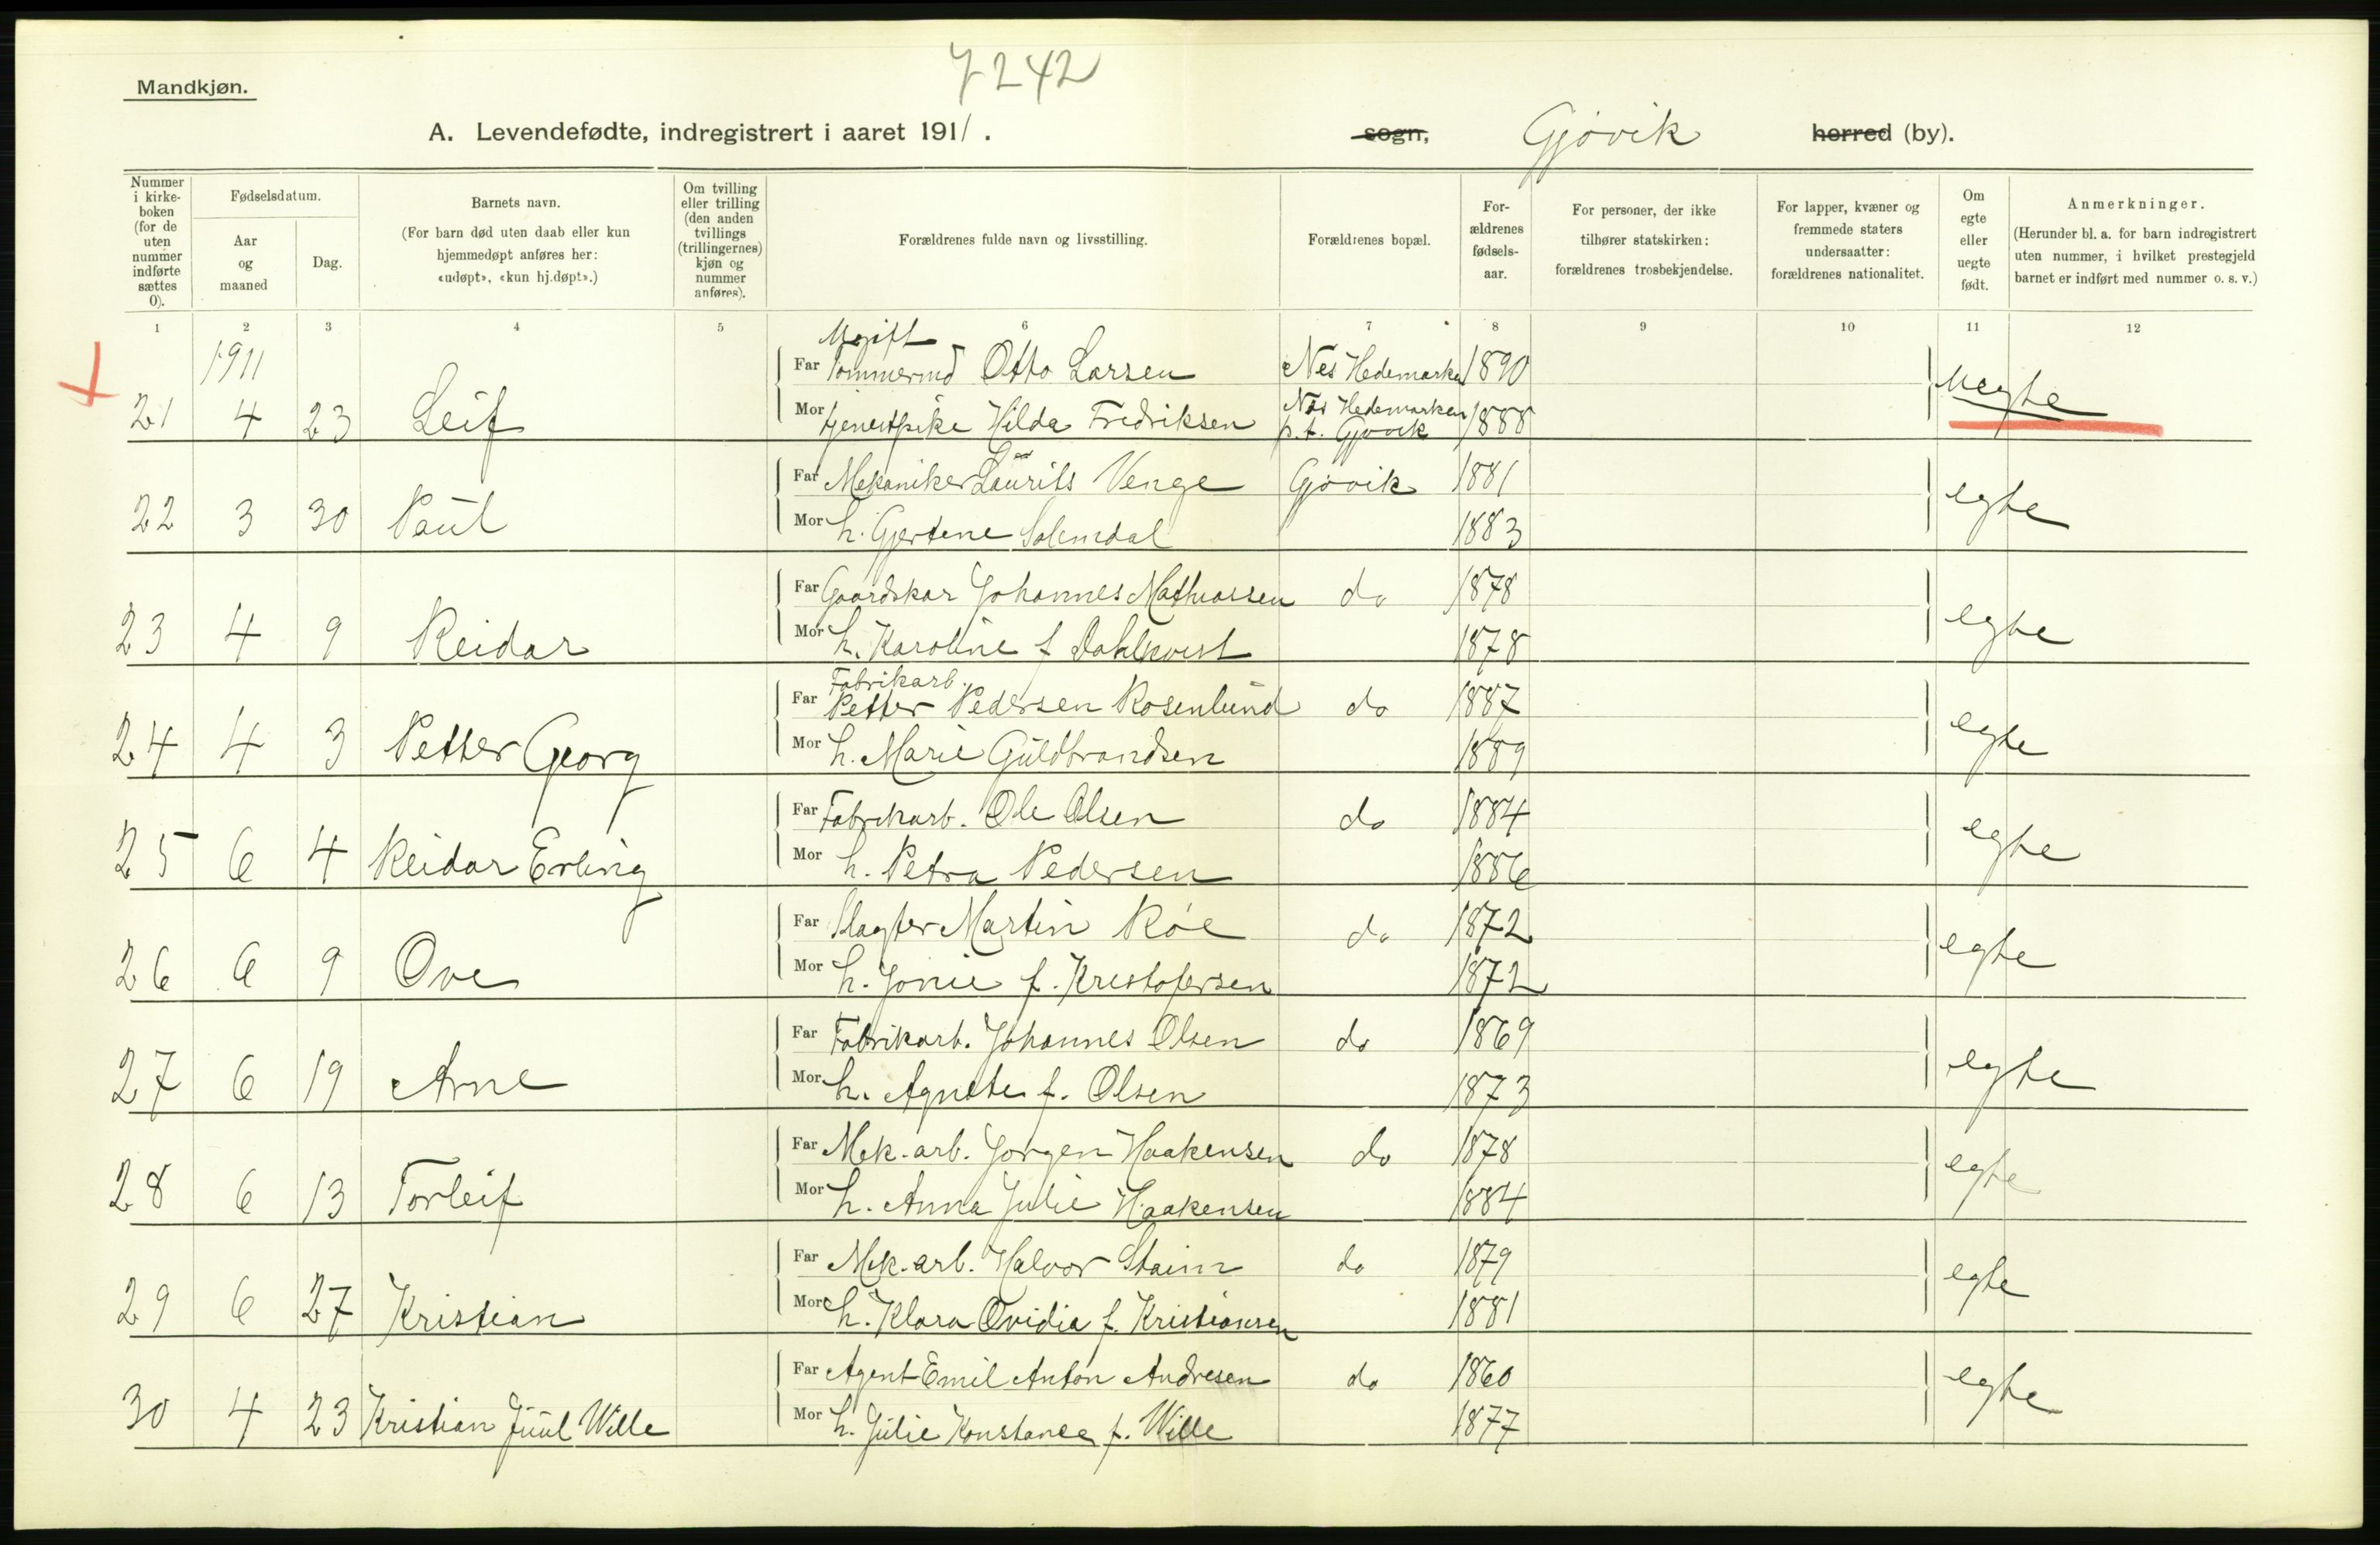 7242
Mandkjøn.
A. Levendefødte, indregistrert i aaret 1911. sogn, Gjøvik herred (by).
Nummer i kirkeboken (for de uten nummer indførte sættes 0). Fødselsdatum. Aar og maaned Dag. Barnets navn. (For barn død uten daab eller kun hjemmedøpt anføres her: «udøpt», «kun hj.døpt».) Om tvilling eller trilling (den anden tvillings (trillingernes) kjøn og nummer anføres). Forældrenes fulde navn og livsstilling. Forældrenes bopæl. Forældrenes fødselsaar. For personer, der ikke tilhører statskirken: forældrenes trosbekjendelse. For lapper, kvæner og fremmede staters undersaatter: forældrenes nationalitet. Om egte eller uegte født. Anmerkninger. (Herunder bl. a. for barn indregistrert uten nummer, i hvilket prestegjeld barnet er indført med nummer o. s. v.)
1 2 3 4 5 6 7 8 9 10 11 12
1911 Ugift
Far Tømmermd Otto Larsen Nes Hedemarken 1890
21 4 23 Leif Mor tjenestpike Hilda Fredriksen Nes Hedemarken p.t. Gjøvik 1888 uegte
Far Mekaniker Laurits Venge Gjøvik 1881
22 3 30 Paul Mor h. Gjertene Solemdal 1883 egte
Far Gaardskar Johannes Mathiassen do 1878
23 4 9 Reidar Mor h. Karoline f Dahlkvist 1878 egte
Fabrikarb.
Far Petter Pedersen Rosenlund do 1887
24 4 3 Petter Georg Mor h. Marie Guldbrandsen 1889 egte
Far Fabrikarb. Ole Olsen do 1884
25 6 4 Reidar Erling Mor h. Petra Pedersen 1886 egte
Far Slagter Martin Röe do 1872
26 6 9 Ove Mor h. Jonie f. Kristofersen 1872 egte
Far Fabrikarb. Johannes Olsen do 1869
27 6 19 Arne Mor h. Agnete f. Olsen 1873 egte
Far Mek. arb. Jorgen Haakensen do 1878
28 6 13 Torleif Mor h. Anna Julie Haakensen 1884 egte
Far Mek. arb. Halvor Staim do 1879
29 6 27 Kristian Mor h. Klara Ovidia f. Kristiansen 1881 egte
Far Agent Emil Anton Andresen do 1860
30 4 23 Kristian Juul Wille Mor h. Julie Konstance f. Wille 1877 egte